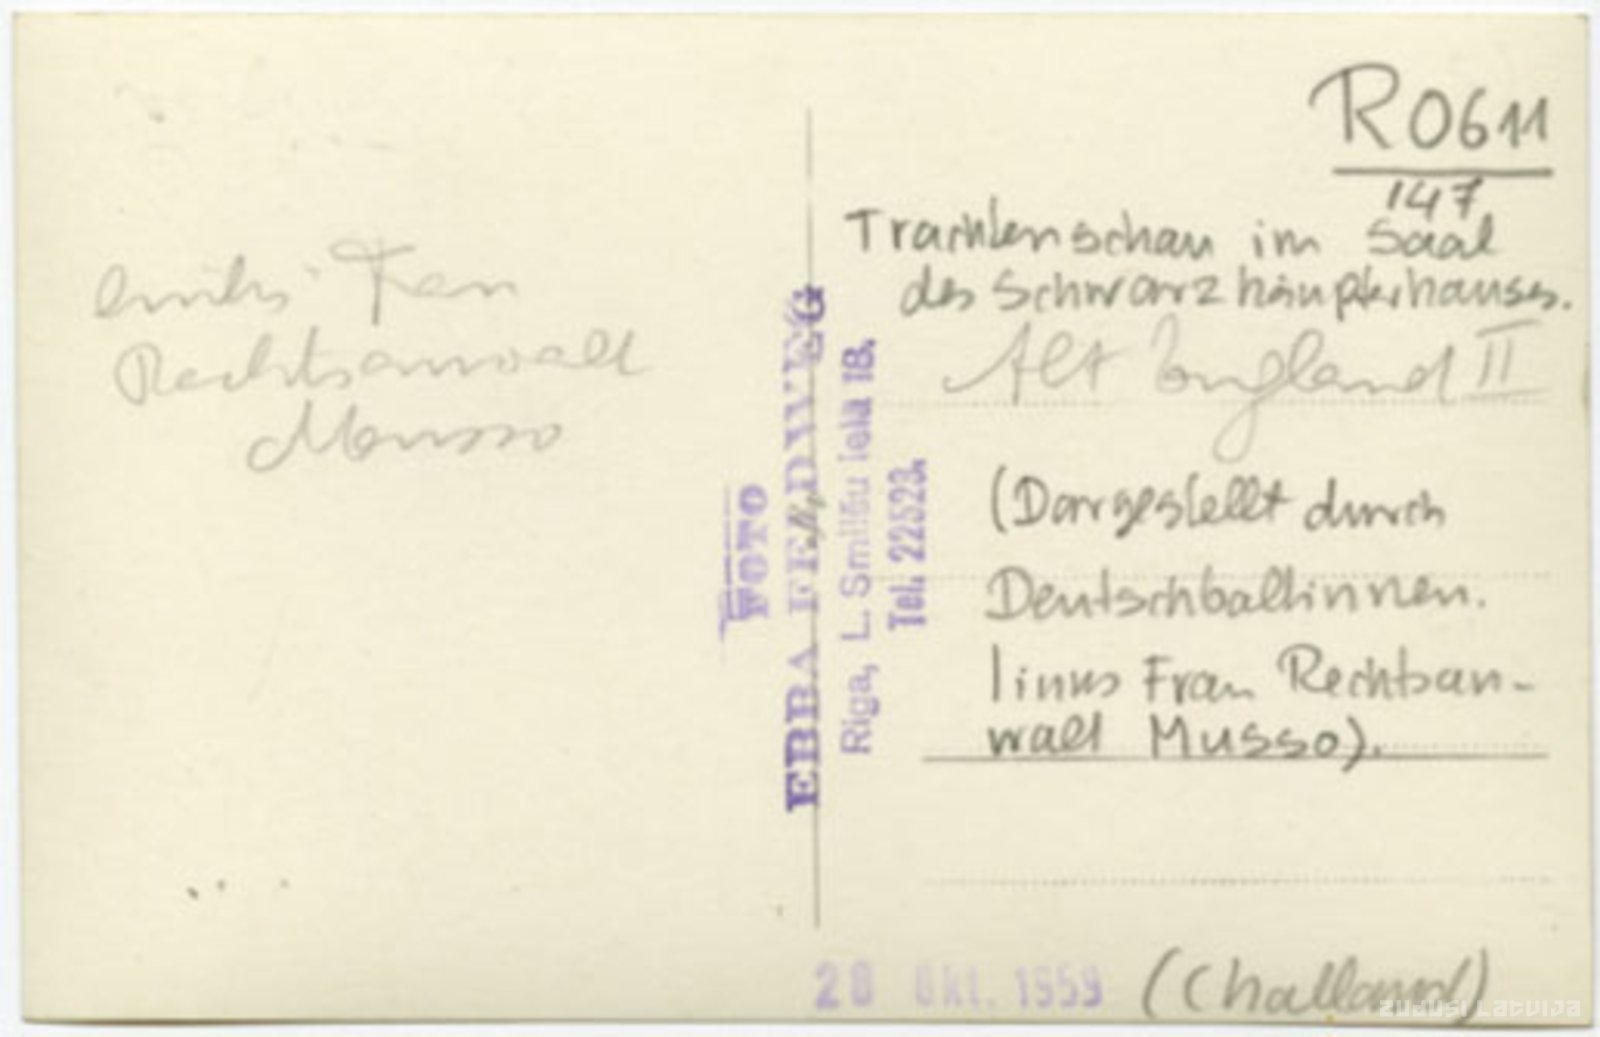 R 0611
147
Trachtenschau im Saal
des Schwarzhäupterhauses.
Alt England II
(Dargestellt durch
Deutschbaltinnen.
links Frau Rechtsan-
walt Musso).
(Challand)
links Frau
Rechtsanwalt
Musso
FOTO
EBBA FEDWEG
Riga, L. Smilšu iela 18.
Tel. 22523.
28 Okt. 1959
ZUDUSI LATVIJA